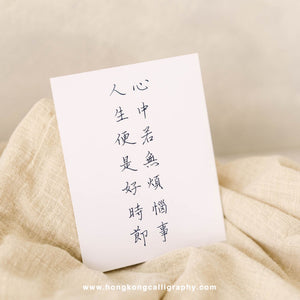 心中若無煩惱事
人生便是好時節
www.hongkongcalligraphy.com